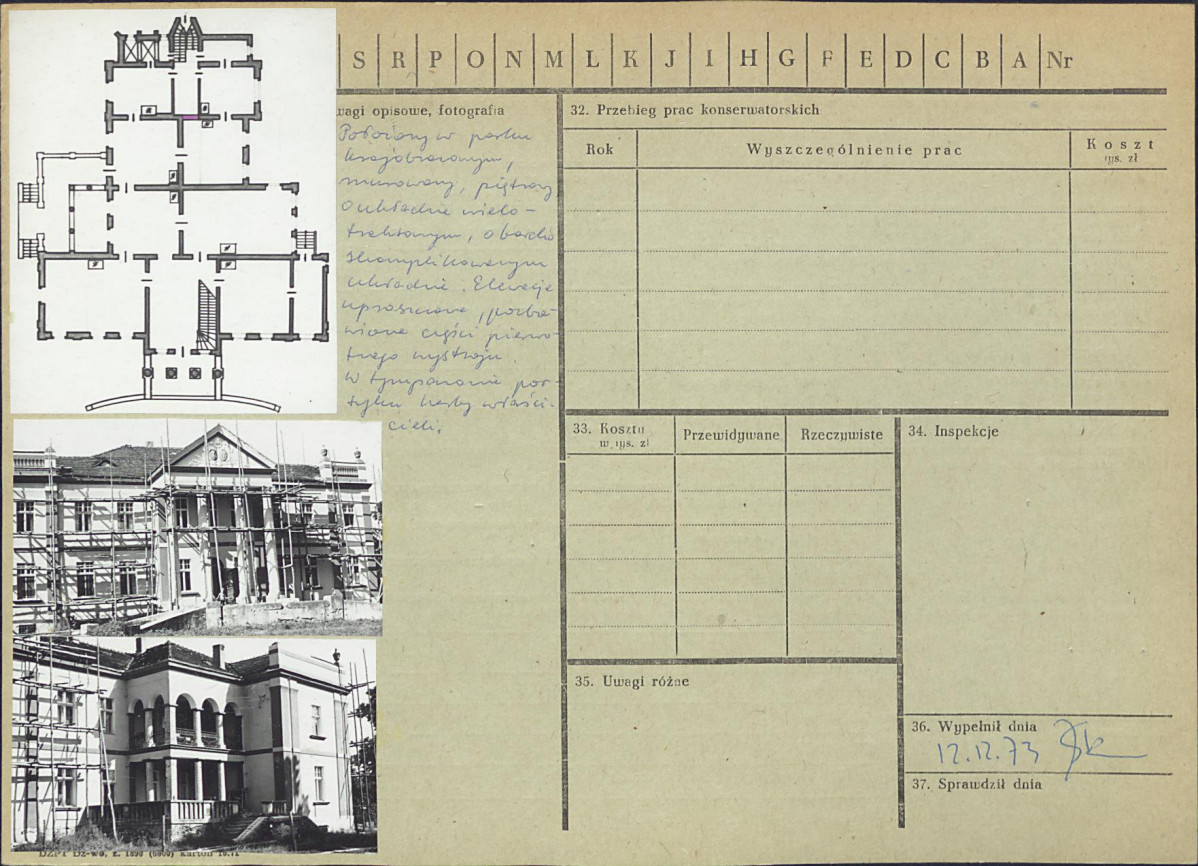 S R P O N M L K J I H G F E D C B A Nr
wagi opisowe, fotografia
Położony w parku
krajobrazowym,
murowany, piętrowy
o układzie wielo-
traktowym, o bardzo
skomplikowanym
układzie. Elewacje
uproszczone, pozba-
wione części pierwo-
tnego wystroju.
W tympanonie por-
tyku herby właści-
cieli.
32. Przebieg prac konserwatorskich
Rok
Wyszczególnienie prac
Koszt
tys. zł
33. Koszty
w tys. zł
Przewidywane
Rzeczywiste
34. Inspekcje
35. Uwagi różne
36. Wypełnił dnia
12.12.73
37. Sprawdził dnia
DZPT Dz-wo, z. 1890 (6900) karton 10.71